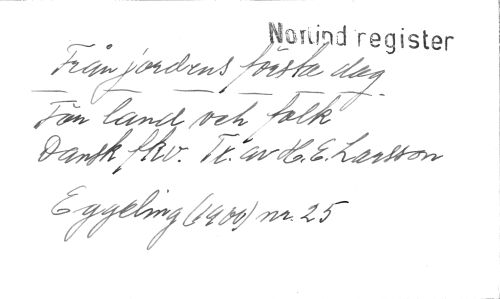 Norlind register
Från jordens första dag
Fån land och folk
Dansk fkv. Tr. av H.E. Larsson
Eggeling (1900) nr. 25